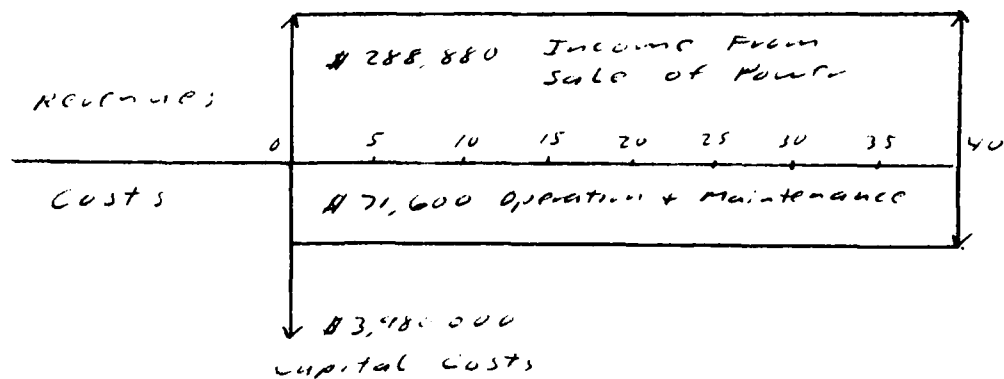 $288,880 Income From
Sale of Power
Revenues
0 5 10 15 20 25 30 35 40
Costs
$71,600 Operation + Maintenance
Capital Costs